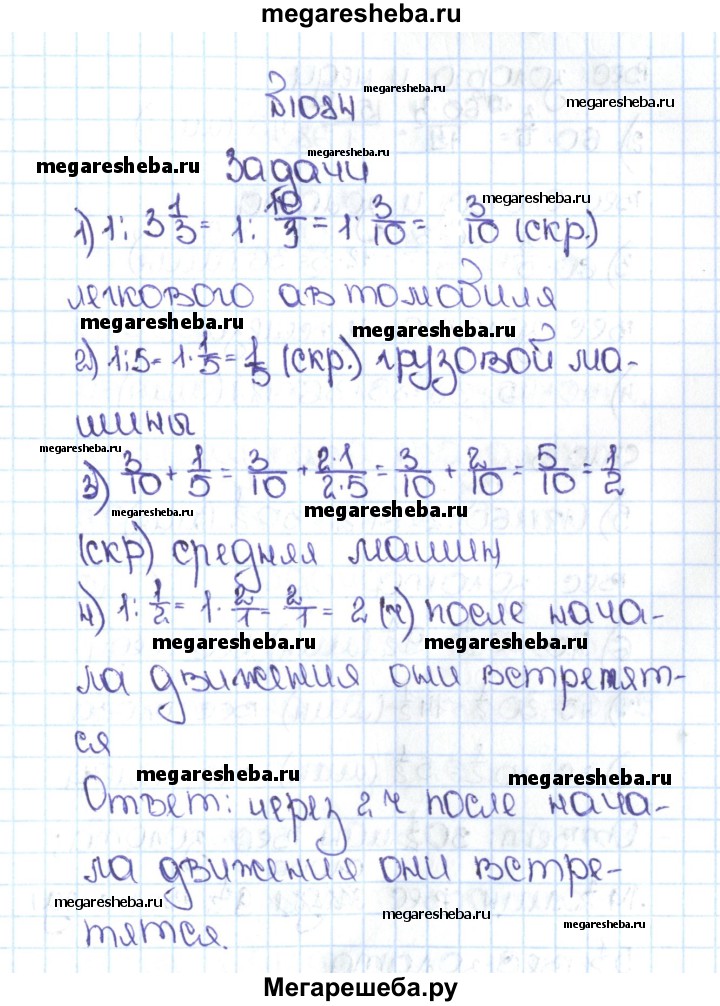 megaresheba.ru
№1084
megaresheba.ru
megaresheba.ru
megaresheba.ru
Задачи
megaresheba.ru
1) 1 : 3 1/3 = 1 : 10/3 = 1 · 3/10 = 3/10 (скр.)
легкового автомобиля
megaresheba.ru
megaresheba.ru
2) 1:5 = 1 · 1/5 = 1/5 (скр.) грузовой ма-
шины
megaresheba.ru
3) 3/10 + 1/5 = 3/10 + 2·1/2·5 = 3/10 + 2/10 = 5/10 = 1/2
megaresheba.ru
megaresheba.ru
(скр) средняя машин
4) 1 : 1/2 = 1 · 2/1 = 2/1 = 2 (ч) после нача-
megaresheba.ru
megaresheba.ru
ла движения они встретят-
ся
megaresheba.ru
megaresheba.ru
Ответ: через 2 ч после нача-
ла движения они встре-
megaresheba.ru
megaresheba.ru
megaresheba.ru
тятся.
Мегарешеба.ру